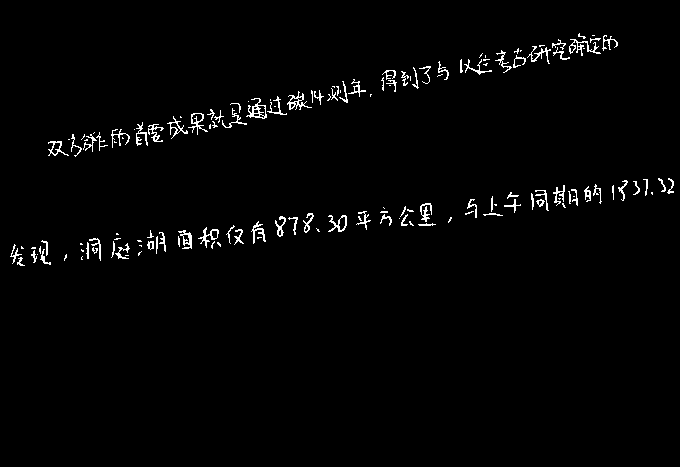 双方合作的首要成果就是通过碳14测年,得到了与以往考古研究确定的
发现,洞庭湖面积仅有878.30平方公里,与上午同期的1837.32